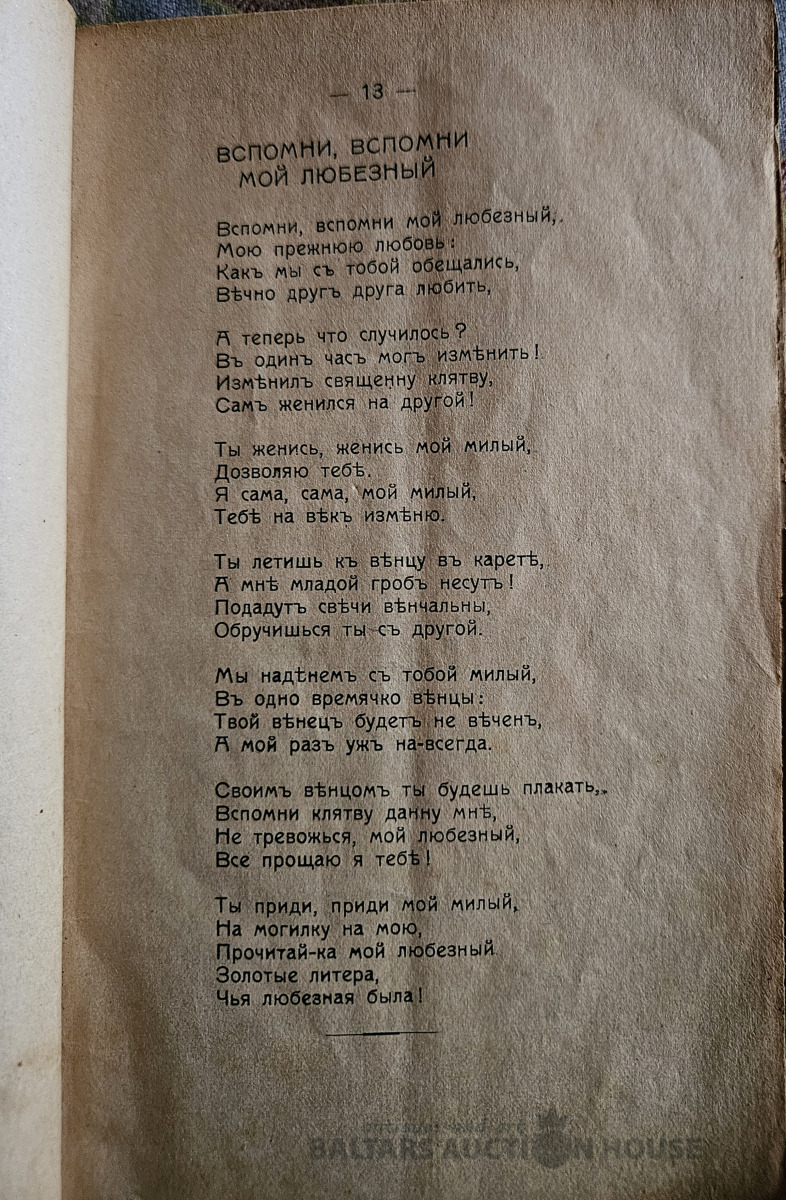 — 13 —
ВСПОМНИ, ВСПОМНИ
МОЙ ЛЮБЕЗНЫЙ
Вспомни, вспомни мой любезный,
Мою прежнюю любовь:
Какъ мы съ тобой обещались,
Вѣчно другъ друга любить,
А теперь что случилось?
Въ одинъ часъ могъ измѣнить!
Измѣнилъ священну клятву,
Самъ женился на другой!
Ты женись, женись мой милый,
Дозволяю тебѣ.
Я сама, сама, мой милый,
Тебѣ на вѣкъ измѣню.
Ты летишь къ вѣнцу въ каретѣ,
А мнѣ младой гробъ несутъ!
Подадутъ свѣчи вѣнчальны,
Обручишься ты съ другой.
Мы надѣнемъ съ тобой милый,
Въ одно времячко вѣнцы:
Твой вѣнецъ будетъ не вѣченъ,
А мой разъ ужъ на-всегда.
Своимъ вѣнцомъ ты будешь плакать,
Вспомни клятву данну мнѣ,
Не тревожься, мой любезный,
Все прощаю я тебѣ!
Ты приди, приди мой милый,
На могилку на мою,
Прочитай-ка мой любезный
Золотые литера,
Чья любезная была!
antique and art
BALTARS AUCTION HOUSE